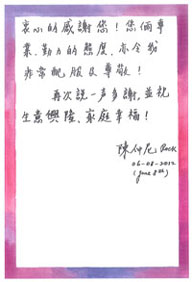 衷心的感謝您！您倆事
業、勤力的態度、亦令我
非常佩服及尊敬！
再次說一声多謝，並祝
生意興隆、家庭幸福！
陳仲尼 Rock
06-08-2012
(June 8th)